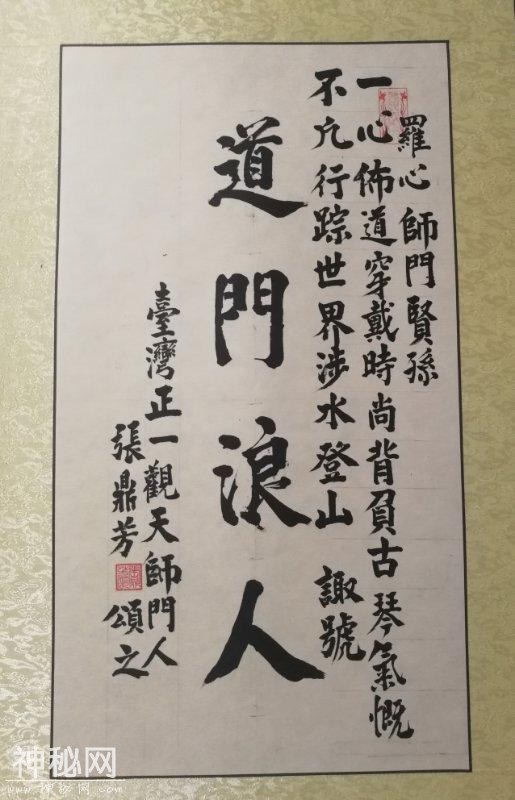 羅心 師門賢孫
一心佈道穿戴時尚背負古琴氣慨
不凢行踪世界涉水登山 諏號
道門浪人
臺灣正一觀天師門人
張鼎芳 頌之
神秘网